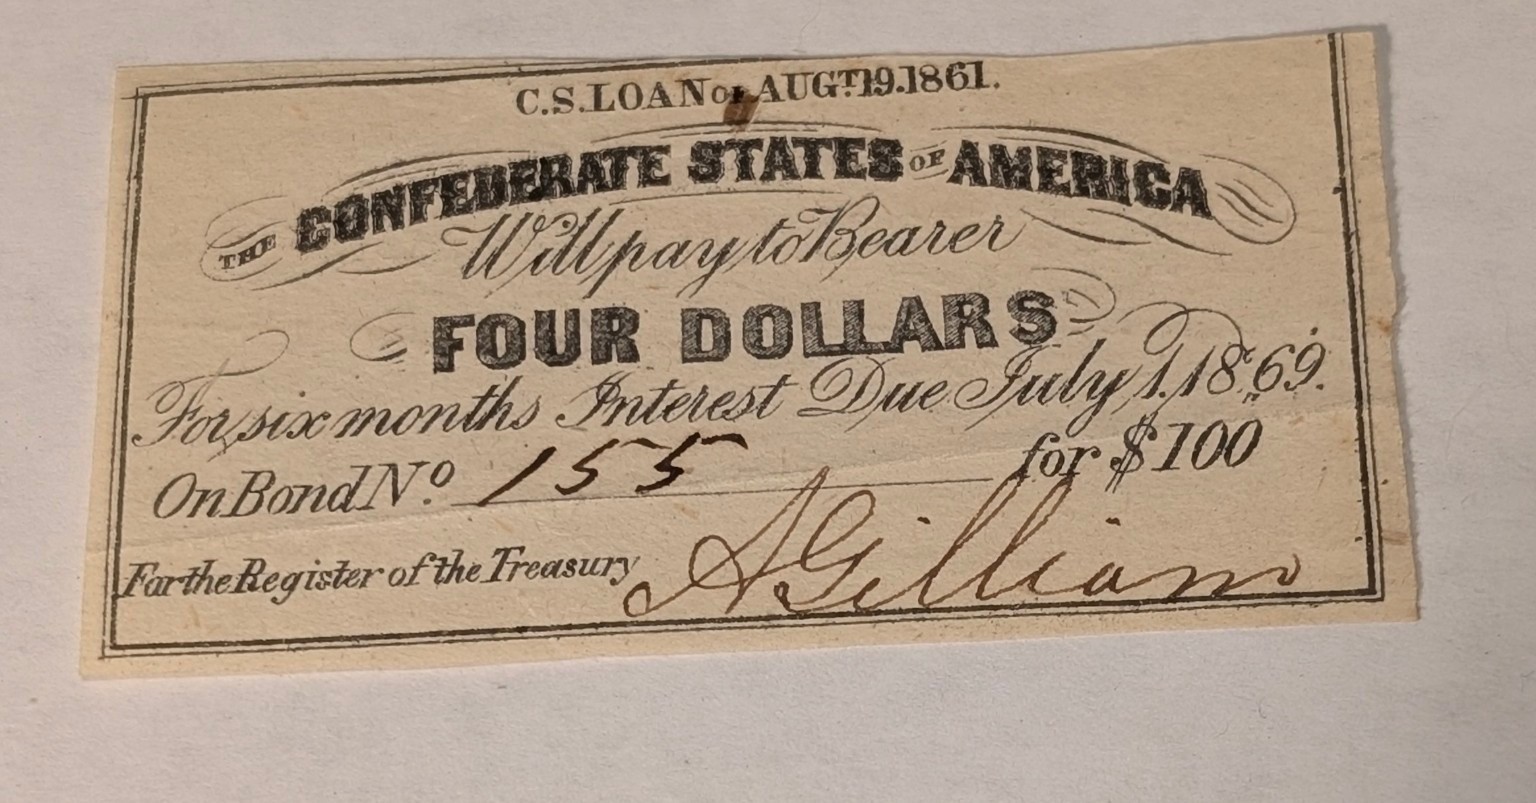 C.S. LOAN OF AUGT. 19. 1861.
THE CONFEDERATE STATES OF AMERICA
Will pay to Bearer
FOUR DOLLARS
For six months Interest Due July 1, 1869.
On Bond No. 155 for $100
For the Register of the Treasury A Gilliam